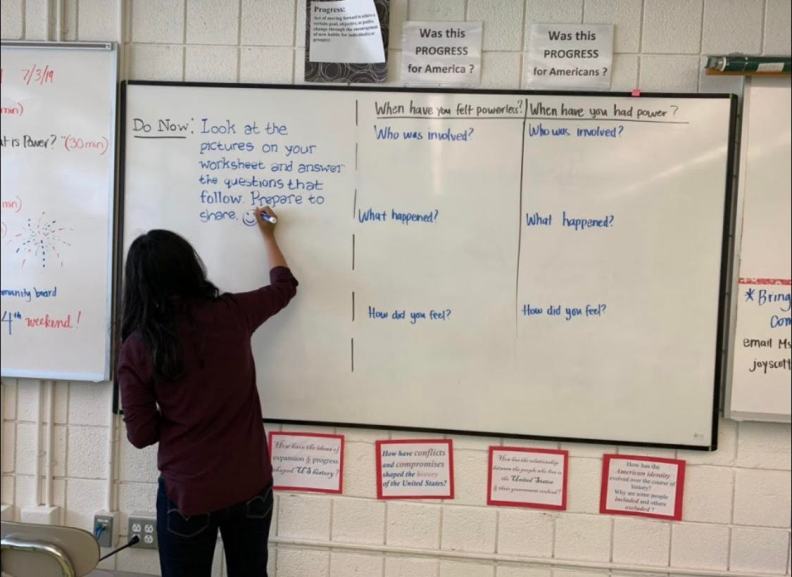 Progress:
Act of moving forward to achieve a
Was this
PROGRESS
for America ?
Was this
PROGRESS
for Americans ?
7/3/19
min)
at is Power? "(30min)
min)
munity board
4th weekend!
Do Now: Look at the
pictures on your
worksheet and answer
the questions that
follow. Prepare to
share.
When have you felt powerless?
Who was involved?
What happened?
How did you feel?
When have you had power?
Who was involved?
What happened?
How did you feel?
* Bring
Com
email Ms
joyscott
How have the ideas of
expansion & progress
shaped US history?
How have conflicts
and compromises
shaped the history
of the United States?
How has the relationship
between the people who live in
the United States
& their government evolved?
How has the
American identity
evolved over the course of
history?
Why are some people
included and others
excluded ?